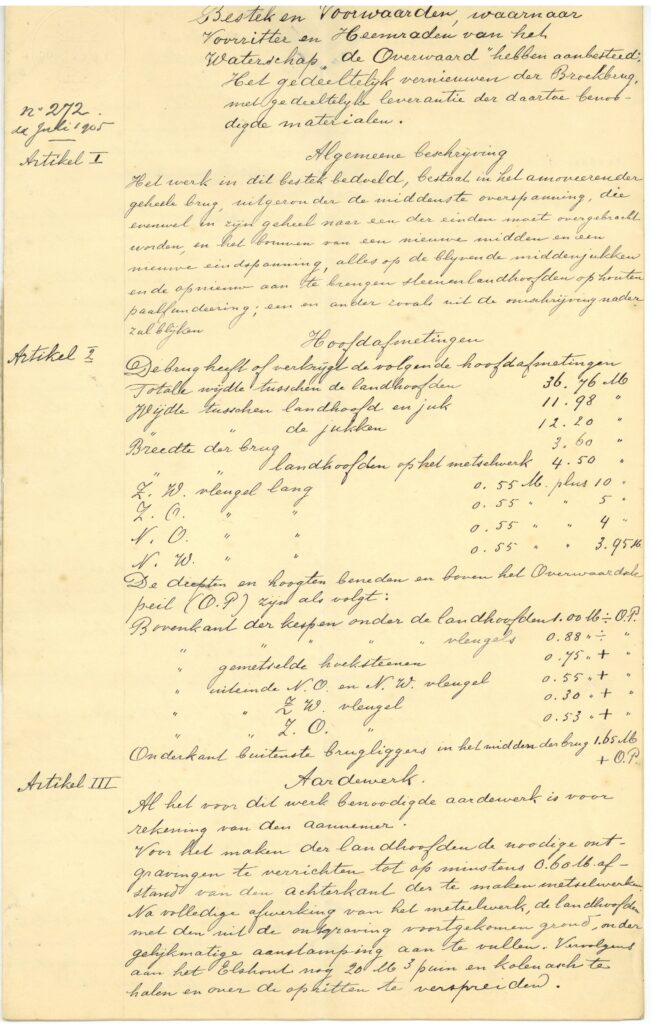 Bestek en Voorwaarden, waarnaar
Voorzitter en Heemraden van het
Waterschap „de Overwaard" hebben aanbesteed:
Het gedeeltelijk vernieuwen der Broekbrug,
met gedeeltelijke leverantie der daartoe benoo-
digde materialen.
no 272.
dd Juli 1905
Artikel I
Algemeene beschrijving
Het werk in dit bestek bedoeld, bestaat in het amoveeren der
geheele brug, uitgezonderd de middenste overspanning, die
evenwel in zijn geheel naar een der einden moet overgebracht
worden, en het bouwen van een nieuwe midden en een
nieuwe eindspanning, alles op de blijvende middenjukken
en de opnieuw aan te brengen steenen landhoofden op houten
paalfundeering; een en ander zooals uit de omschrijving nader
zal blijken
Artikel 2
Hoofdafmetingen
De brug heeft of verkrijgt de volgende hoofdafmetingen
Totale wijdte tusschen de landhoofden 36.76 M
Wijdte tusschen landhoofd en juk 11.98 "
" " de jukken 12.20 "
Breedte der brug 3.60 "
" " landhoofden op het metselwerk 4.50 "
Z. W. vleugel lang 0.55 M. plus 10 "
Z. O. " " 0.55 " " 5 "
N. O. " " 0.55 " " 4 "
N. W. " " 0.55 " " 3.95 M
De diepten en hoogten beneden en boven het Overwaards
peil (O.P) zijn als volgt:
Bovenkant der kespen onder de landhoofden 1.00 M ÷ O.P.
" " " " " vleugels 0.88 " ÷ "
" gemetselde hoeksteenen 0.75 " + "
" uiteinde N.O. en N.W. vleugel 0.55 " + "
" " Z.W. vleugel 0.30 " + "
" " Z.O. " 0.53 " + "
Onderkant buitenste brugliggers in het midden der brug 1.65 M
+ O.P.
Artikel III
Aardewerk.
Al het voor dit werk benoodigde aardewerk is voor
rekening van den aannemer.
Voor het maken der landhoofden de noodige ont-
gravingen te verrichten tot op minstens 0.60 M. af-
stand van den achterkant der te maken metselwerken
Na volledige afwerking van het metselwerk, de landhoofden
met den uit de ontgraving voortgekomen grond, onder
gelijkmatige aanstamping aan te vullen. Vervolgens
aan het Elshout nog 20 M3 puin en kolenasch te
halen en over de opritten te verspreiden.